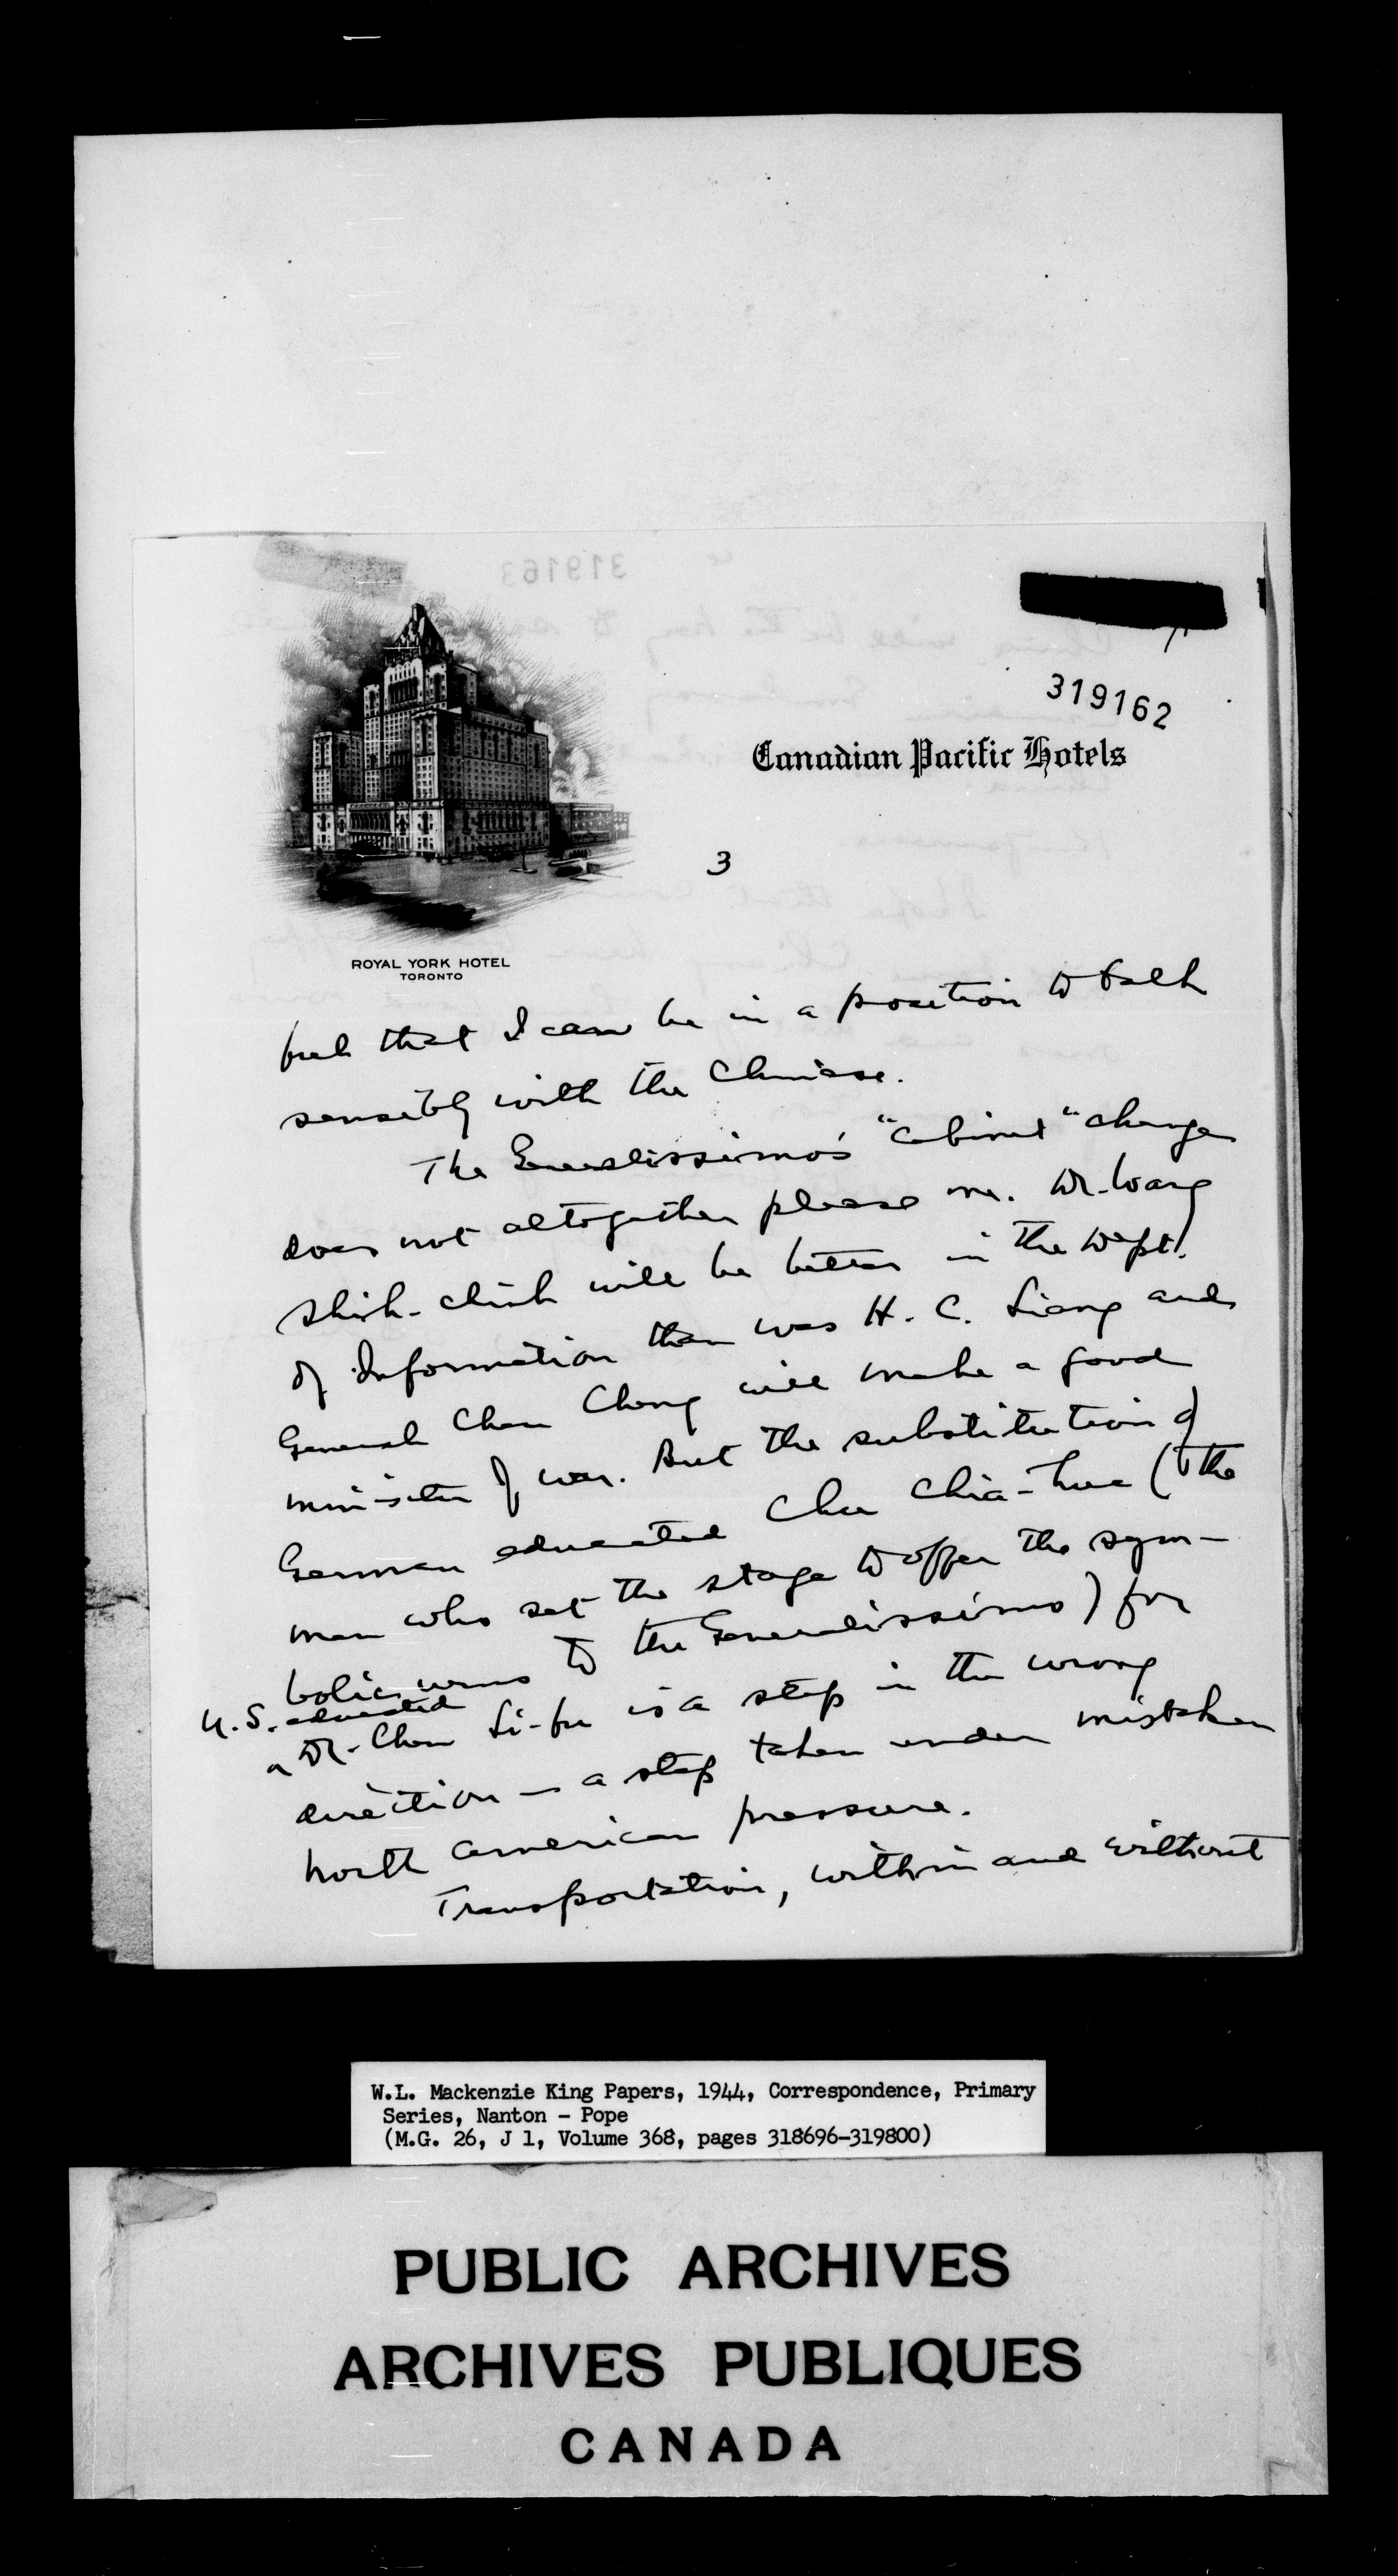 319162
Canadian Pacific Hotels
3
ROYAL YORK HOTEL
TORONTO
feel that I can be in a position to talk
sensibly with the Chinese.
The Generalissimo's "Cabinet" changes
does not altogether please me. Dr. Wang
Shih-chieh will be better in the Dept.
of Information than was H. C. Liang and
General Chen Cheng will make a good
minister of war. But the substitution of
German educated Chu Chia-hua (the
man who set the stage to offer the sym-
bolic urns to the Generalissimo) for
U.S. educated
Dr. Chen Li-fu is a step in the wrong
direction – a step taken under mistaken
North American pressure.
Transportation, within and without
W.L. Mackenzie King Papers, 1944, Correspondence, Primary
Series, Nanton - Pope
(M.G. 26, J 1, Volume 368, pages 318696-319800)
PUBLIC ARCHIVES
ARCHIVES PUBLIQUES
CANADA